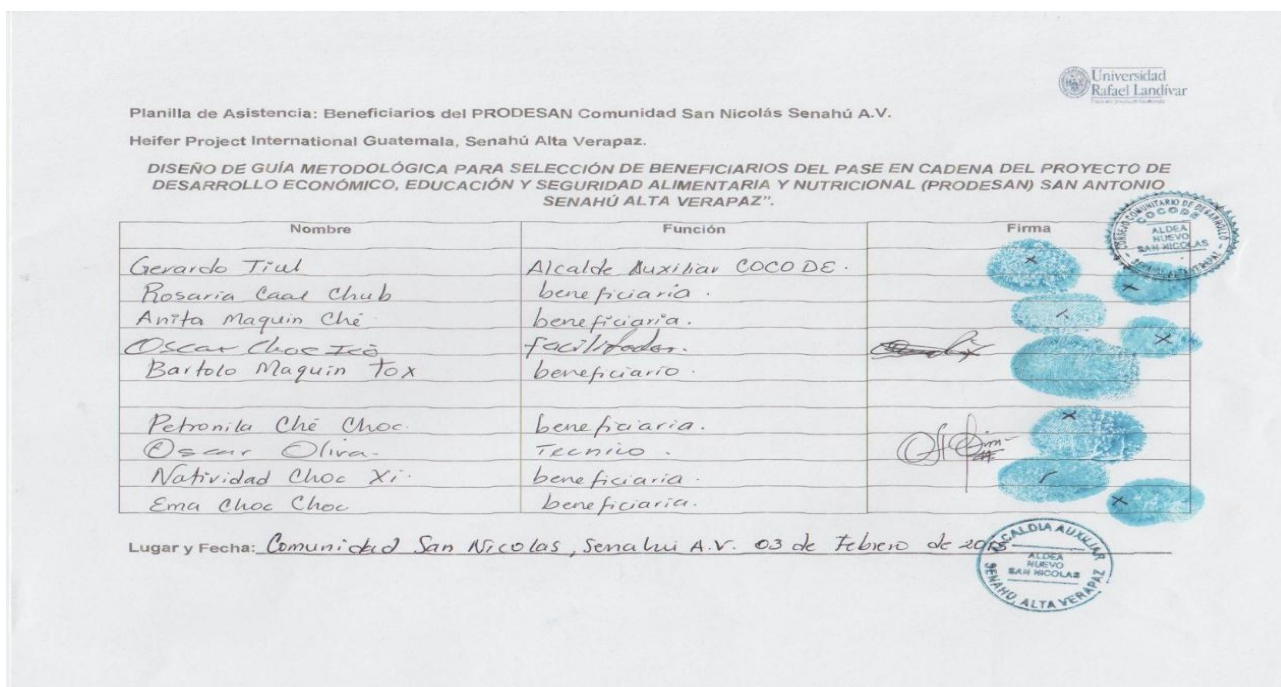 Universidad
Rafael Landívar
Planilla de Asistencia: Beneficiarios del PRODESAN Comunidad San Nicolás Senahú A.V.
Heifer Project International Guatemala, Senahú Alta Verapaz.
DISEÑO DE GUÍA METODOLÓGICA PARA SELECCIÓN DE BENEFICIARIOS DEL PASE EN CADENA DEL PROYECTO DE
DESARROLLO ECONÓMICO, EDUCACIÓN Y SEGURIDAD ALIMENTARIA Y NUTRICIONAL (PRODESAN) SAN ANTONIO
SENAHÚ ALTA VERAPAZ”.
CONSEJO COMUNITARIO DE DESARROLLO
COCODE
ALDEA
NUEVO
SAN NICOLAS
SENAHU, ALTA VERAPAZ
Nombre Función Firma
Gerardo Tiul Alcalde Auxiliar COCODE.
Rosaria Caal Chub beneficiaria.
Anita Maquin Ché beneficiaria.
Oscar Choc Icó facilitador.
Bartolo Maquin Tox beneficiario.
Petronila Ché Choc. beneficiaria.
Oscar Oliva. Tecnico.
Natividad Choc Xi. beneficiaria.
Ema Choc Choc beneficiaria.
Lugar y Fecha: Comunidad San Nicolas, Senahu A.V. 03 de Febrero de
ALCALDIA AUXILIAR
ALDEA
NUEVO
SAN NICOLAS
SENAHU, ALTA VERAPAZ